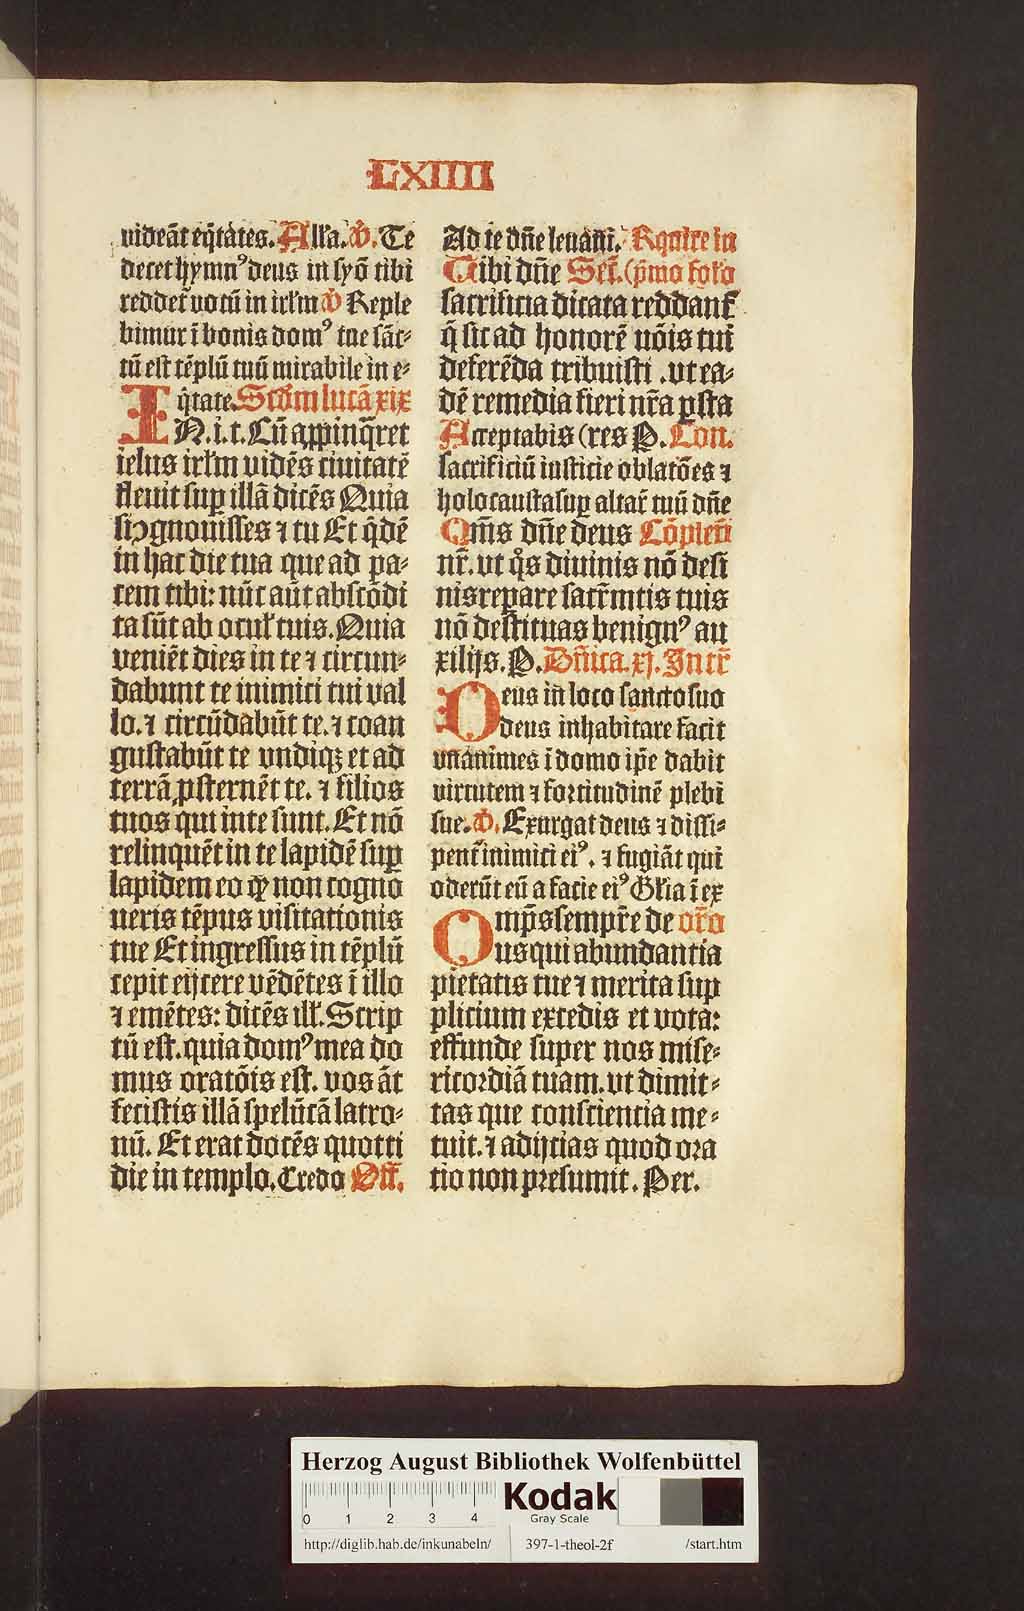 LXIIII
videāt eq̄tates. Alla. v̄. Te
decet hymnꝰ deus in syō tibi
reddet᷑ votū in irl̄m v̄ Reple
bimur ī bonis domꝰ tue sāc⸗
tū est tēplū tuū mirabile in e⸗
q̄tate. Scd̄m lucā xix
IN. i. t. Cū appinq̄ret
iesus irl̄m vidēs ciuitatē
fleuit suꝑ illā dicēs Quia
si ꝯgnouisses ⁊ tu Et q̄dē
in hac die tua que ad pa⸗
cem tibi: nūc aūt abscōdi
ta sūt ab ocul̄ tuis. Quia
veniēt dies in te ⁊ circun⸗
dabunt te inimici tui val
lo. ⁊ circūdabūt te. ⁊ coan
gustabūt te vndiqꝫ et ad
terrā ꝓsternēt te. ⁊ filios
tuos qui inte sunt. Et nō
relinquēt in te lapidē suꝑ
lapidem eo ꝙ non cogno
ueris tēpus visitationis
tue Et ingressus in tēplū
cepit eijcere vēdētes ī illo
⁊ emētes: dicēs ill̄. Scrip
tū est. quia domꝰ mea do
mus oratōis est. vos āt
fecistis illā spelūcā latro⸗
nū. Et erat docēs quotti
die in templo. Credo Off̄.
Ad te dn̄e leuāui. Rq̄nire in
Tibi dn̄e Secr̄. (p̄mo folo
sacrificia dicata reddant᷑
q̄ sic ad honorē nōis tui
deferēda tribuisti . vt ea⸗
dē remedia fieri nr̄a ꝑsta
Acceptabis (res P. Con.
sacrificiū iusticie oblatōes ⁊
holocausta suꝑ altar̄ tuū dn̄e
Qm̄s dn̄e deus Cōplen̄
nr̄. vt q̄s diuinis nō desi
nis reꝑare sacr̄mtis tuis
nō destituas benignꝰ au
xilijs. P. Dn̄ica. xj. Intr̄
Deus in loco sancto suo
deus inhabitare facit
vnanimes ī domo ip̄e dabit
virtutem ⁊ fortitudinē plebi
sue. v̄. Exurgat deus ⁊ dissi⸗
pent᷑ inimici eiꝰ. ⁊ fugiāt qui
oderūt eū a facie eiꝰ Gl̄ia ī ex
Omp̄s sempr̄e de or̄o
us qui abundantia
pietatis tue ⁊ merita sup
plicium excedis et vota:
effunde super nos mise⸗
ricordiā tuam. vt dimit⸗
tas que conscientia me⸗
tuit. ⁊ adijcias quod ora
tio non presumit. Per.
Herzog August Bibliothek Wolfenbüttel
0 1 2 3 4 Kodak
Gray Scale
http://diglib.hab.de/inkunabeln/ 397-1-theol-2f /start.htm